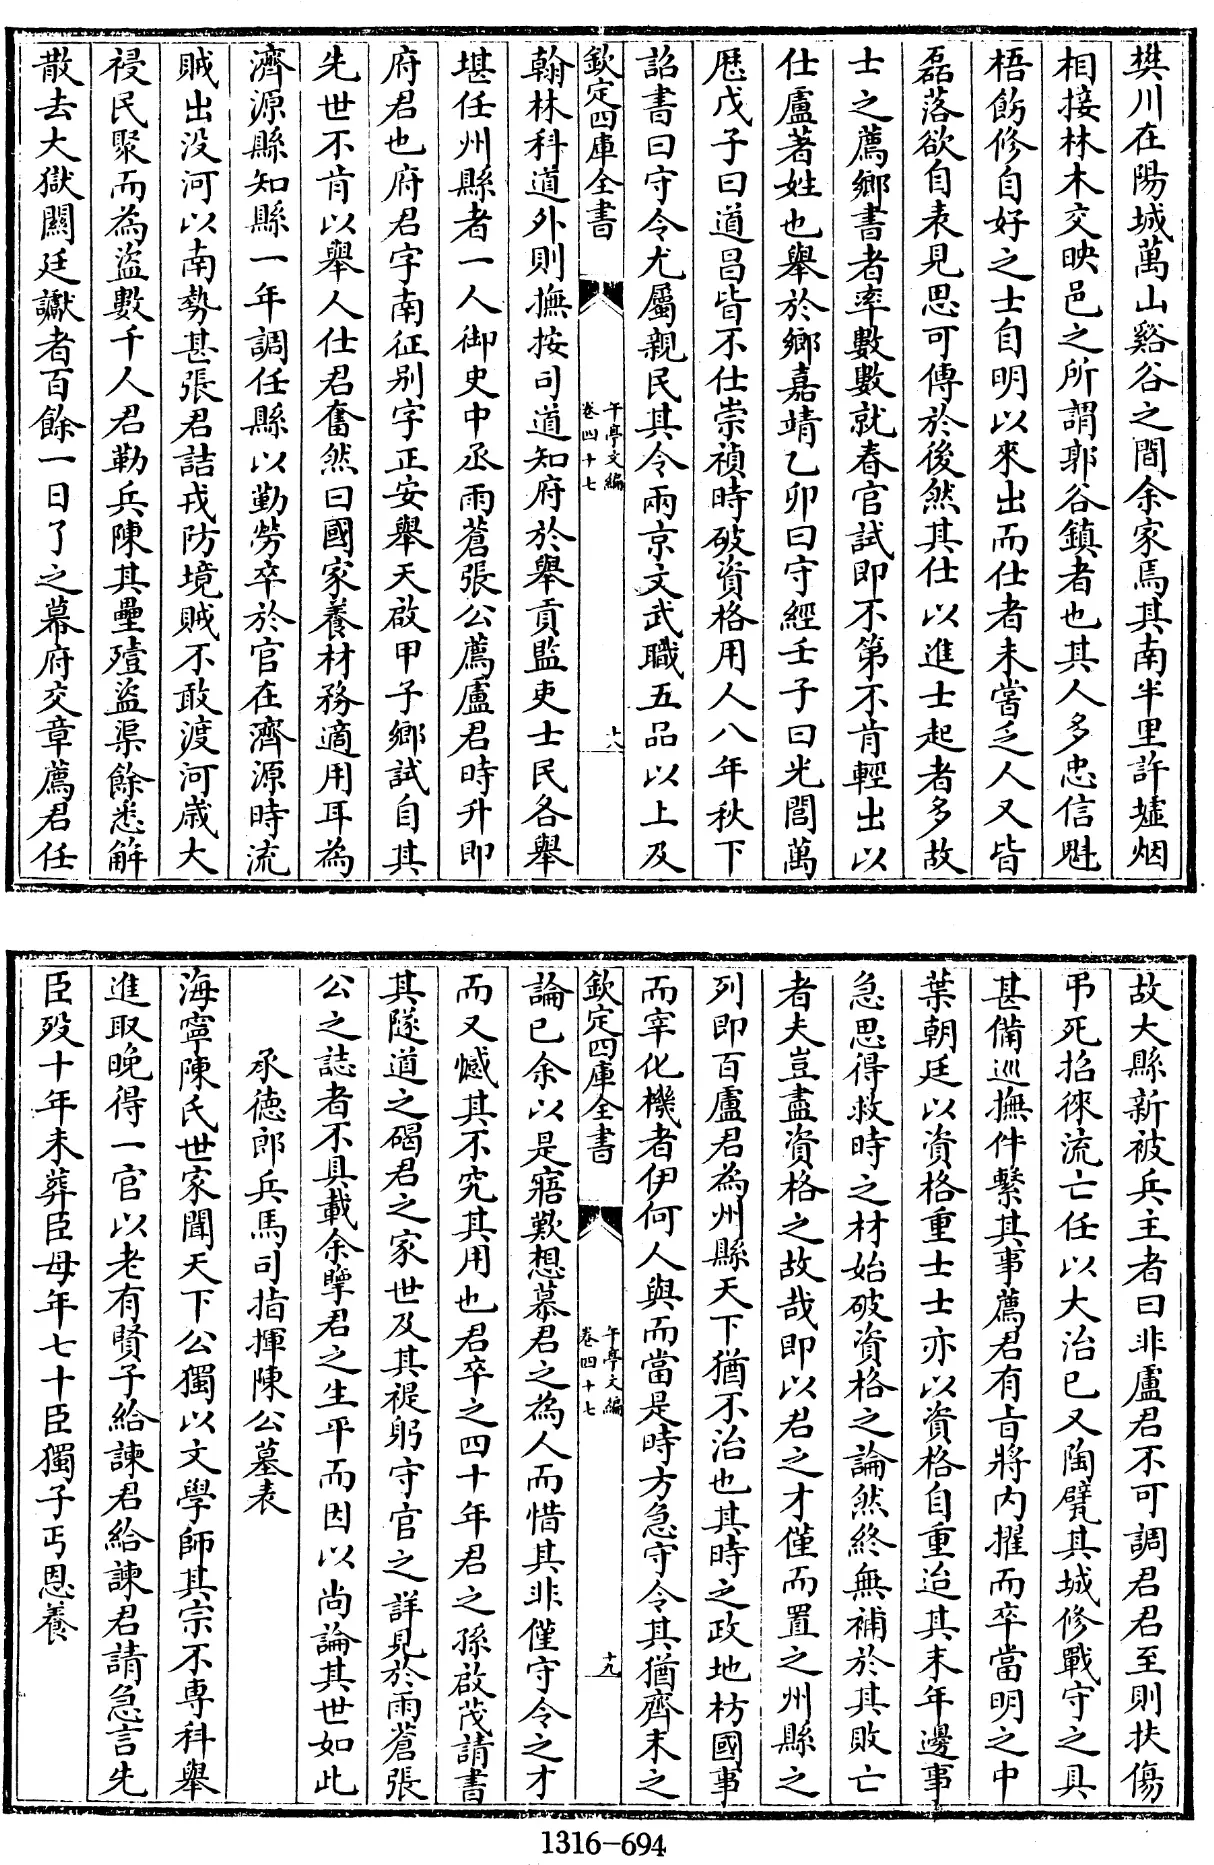 樊川在陽城萬山谿谷之間余家焉其南半里許墟烟
相接林木交映邑之所謂郭谷鎮者也其人多忠信魁
梧飭修自好之士自明以來出而仕者未嘗乏人又皆
磊落欲自表見思可傳於後然其仕以進士起者多故
士之薦鄉書者率數數就春官試即不第不肯輕出以
仕盧著姓也舉於鄉嘉靖乙卯曰守經壬子曰光閭萬
厯戊子曰道昌皆不仕崇禎時破資格用人八年秋下
詔書曰守令尤屬親民其令兩京文武職五品以上及
欽定四庫全書
午亭文編
卷四十七
十八
翰林科道外則撫按司道知府於舉貢監吏士民各舉
堪任州縣者一人御史中丞雨蒼張公薦盧君時升即
府君也府君字南征别字正安舉天啟甲子鄉試自其
先世不肯以舉人仕君奮然曰國家養材務適用耳為
濟源縣知縣一年調任縣以勤勞卒於官在濟源時流
賊出没河以南勢甚張君詰戎防境賊不敢渡河歲大
祲民聚而為盜數千人君勒兵陳其壘殪盜渠餘悉解
散去大獄闕廷讞者百餘一日了之幕府交章薦君任
故大縣新被兵主者曰非盧君不可調君君至則扶傷
弔死招徠流亡任以大治已又陶甓其城修戰守之具
甚備巡撫件繫其事薦君有旨將内擢而卒當明之中
葉朝廷以資格重士士亦以資格自重迨其末年邊事
急思得救時之材始破資格之論然終無補於其敗亡
者夫豈盡資格之故哉即以君之才僅而置之州縣之
列即百盧君為州縣天下猶不治也其時之政地枋國事
而宰化機者伊何人與而當是時方急守令其猶齊末之
欽定四庫全書
午亭文編
卷四十七
十九
論已余以是寤歎想慕君之為人而惜其非僅守令之才
而又憾其不究其用也君卒之四十年君之孫啟茂請書
其隧道之碣君之家世及其禔躬守官之詳見於雨蒼張
公之誌者不具載余犖君之生平而因以尚論其世如此
承德郎兵馬司指揮陳公墓表
海寧陳氏世家聞天下公獨以文學師其宗不專科舉
進取晚得一官以老有賢子給諫君給諫君請急言先
臣歿十年未葬臣母年七十臣獨子丐恩養
1316-694